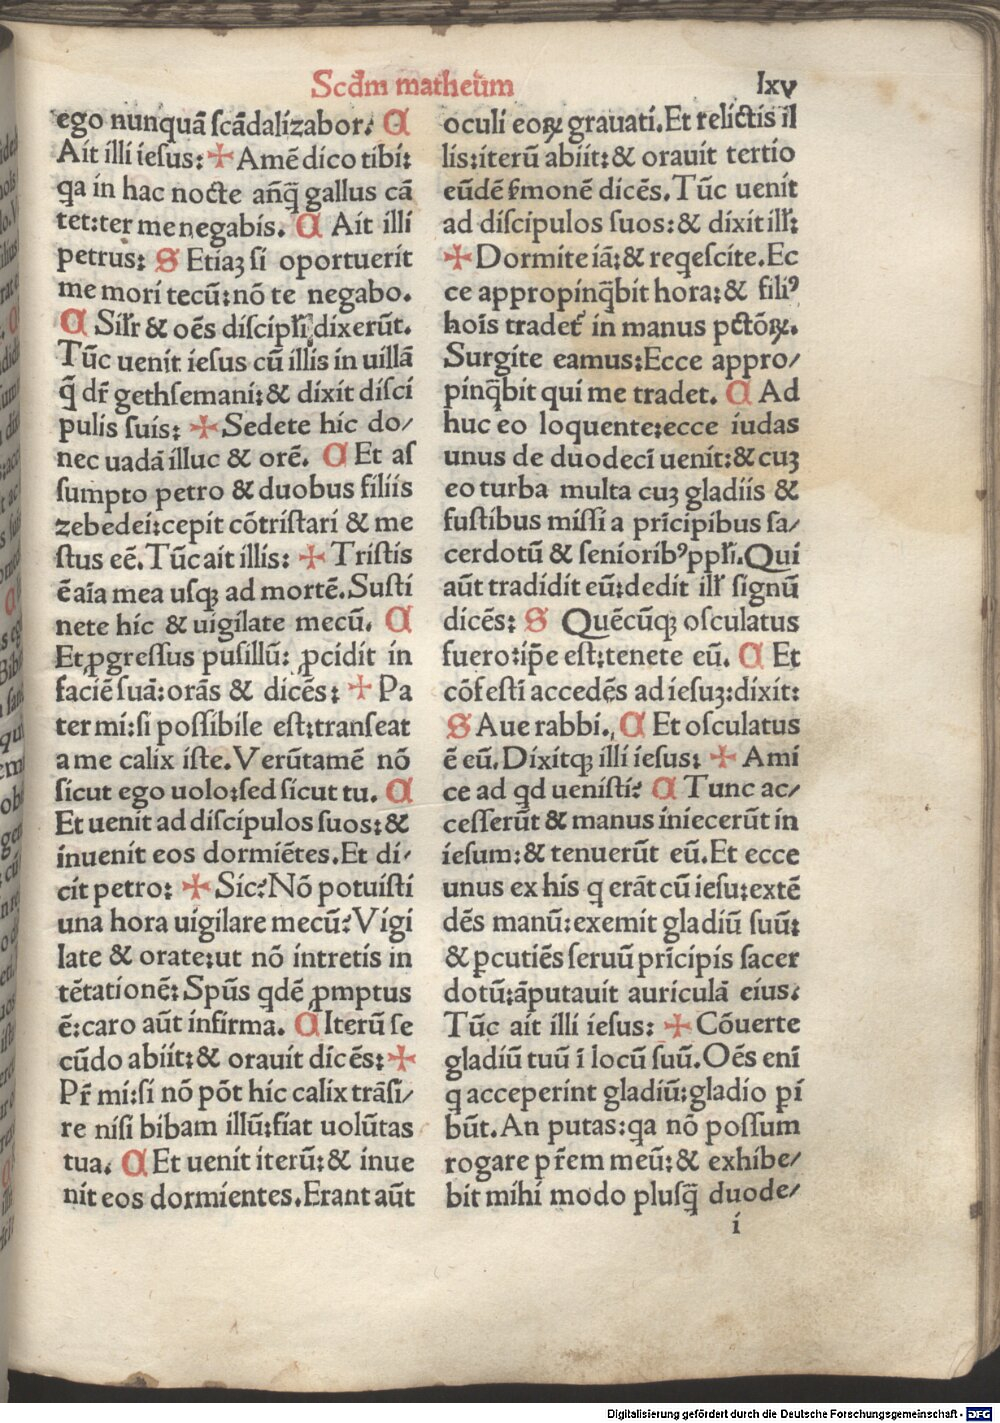 Scd̄m matheūm
lxv
ego nunquā scādalizabor: C
Ait illi iesus: ✠ Amē dico tibi:
qa in hac nocte añq̄ gallus cā
tet: ter me negabis. C Ait illi
petrus: S Etiaꝫ si oportuerit
me mori tecū: nō te negabo.
C Silr̄ & oēs discipl̄i dixerūt.
Tūc uenit iesus cū illis in uillā
q̄ dr̄ gethsemani: & dixit disci
pulis suis: ✠ Sedete hic do/
nec uadā illuc & orē. C Et as
sumpto petro & duobus filiis
zebedei: cepit cōtristari & me
stus eē. Tūc ait illis: ✠ Tristis
ē aīa mea usqꝫ ad mortē. Susti
nete hic & uigilate mecū. C
Et ꝓgressus pusillū: ꝓcidit in
faciē suā: orās & dicēs: ✠ Pa
ter mi: si possibile est: transeat
a me calix iste. Verūtamē nō
sicut ego uolo: sed sicut tu. C
Et uenit ad discipulos suos: &
inuenit eos dormiētes. Et di/
cit petro: ✠ Sic? Nō potuisti
una hora uigilare mecū? Vigi
late & orate: ut nō intretis in
tētationē: Spūs qdē ꝓmptus
ē: caro aūt infirma. C Iterū se
cūdo abiit: & orauit dicēs: ✠
Pr̄ mi: si nō pōt hic calix trāsi/
re nisi bibam illū: fiat uolūtas
tua. C Et uenit iterū: & inue
nit eos dormientes. Erant aūt
oculi eoꝝ grauati. Et relictis il
lis: iterū abiit: & orauit tertio
eūdē ẜmonē dicēs. Tūc uenit
ad discipulos suos: & dixit ill̄:
✠ Dormite iā: & reqescite. Ec
ce appropinq̄bit hora: & filiꝰ
hoīs tradet᷑ in manus pctōꝝ.
Surgite eamus: Ecce appro/
pinq̄bit qui me tradet. C Ad
huc eo loquente: ecce iudas
unus de duodeci uenit: & cuꝫ
eo turba multa cuꝫ gladiis &
fustibus missi a prīcipibus sa/
cerdotū & senioribꝰ ppl̄i. Qui
aūt tradidit eū: dedit ill̄ signū
dicēs: S Quēcūqꝫ osculatus
fuero: ip̄e est: tenete eū. C Et
cōfesti accedēs ad iesuꝫ: dixit:
S Aue rabbi. C Et osculatus
ē eū. Dixitqꝫ illi iesus: ✠ Ami
ce ad qd uenisti? C Tunc ac/
cesserūt & manus iniecerūt in
iesum: & tenuerūt eū. Et ecce
unus ex his q erāt cū iesu: extē
dēs manū: exemit gladiū suū:
& ꝑcutiēs seruū prīcipis sacer
dotū: āputauit auriculā eius:
Tūc ait illi iesus: ✠ Cōuerte
gladiū tuū ī locū suū. Oēs enī
q acceperint gladiū: gladio ꝑi
būt. An putas: qa nō possum
rogare pr̄em meū: & exhibe/
bit mihi modo plusq̄ duode/
i
Digitalisierung gefördert durch die Deutsche Forschungsgemeinschaft - DFG